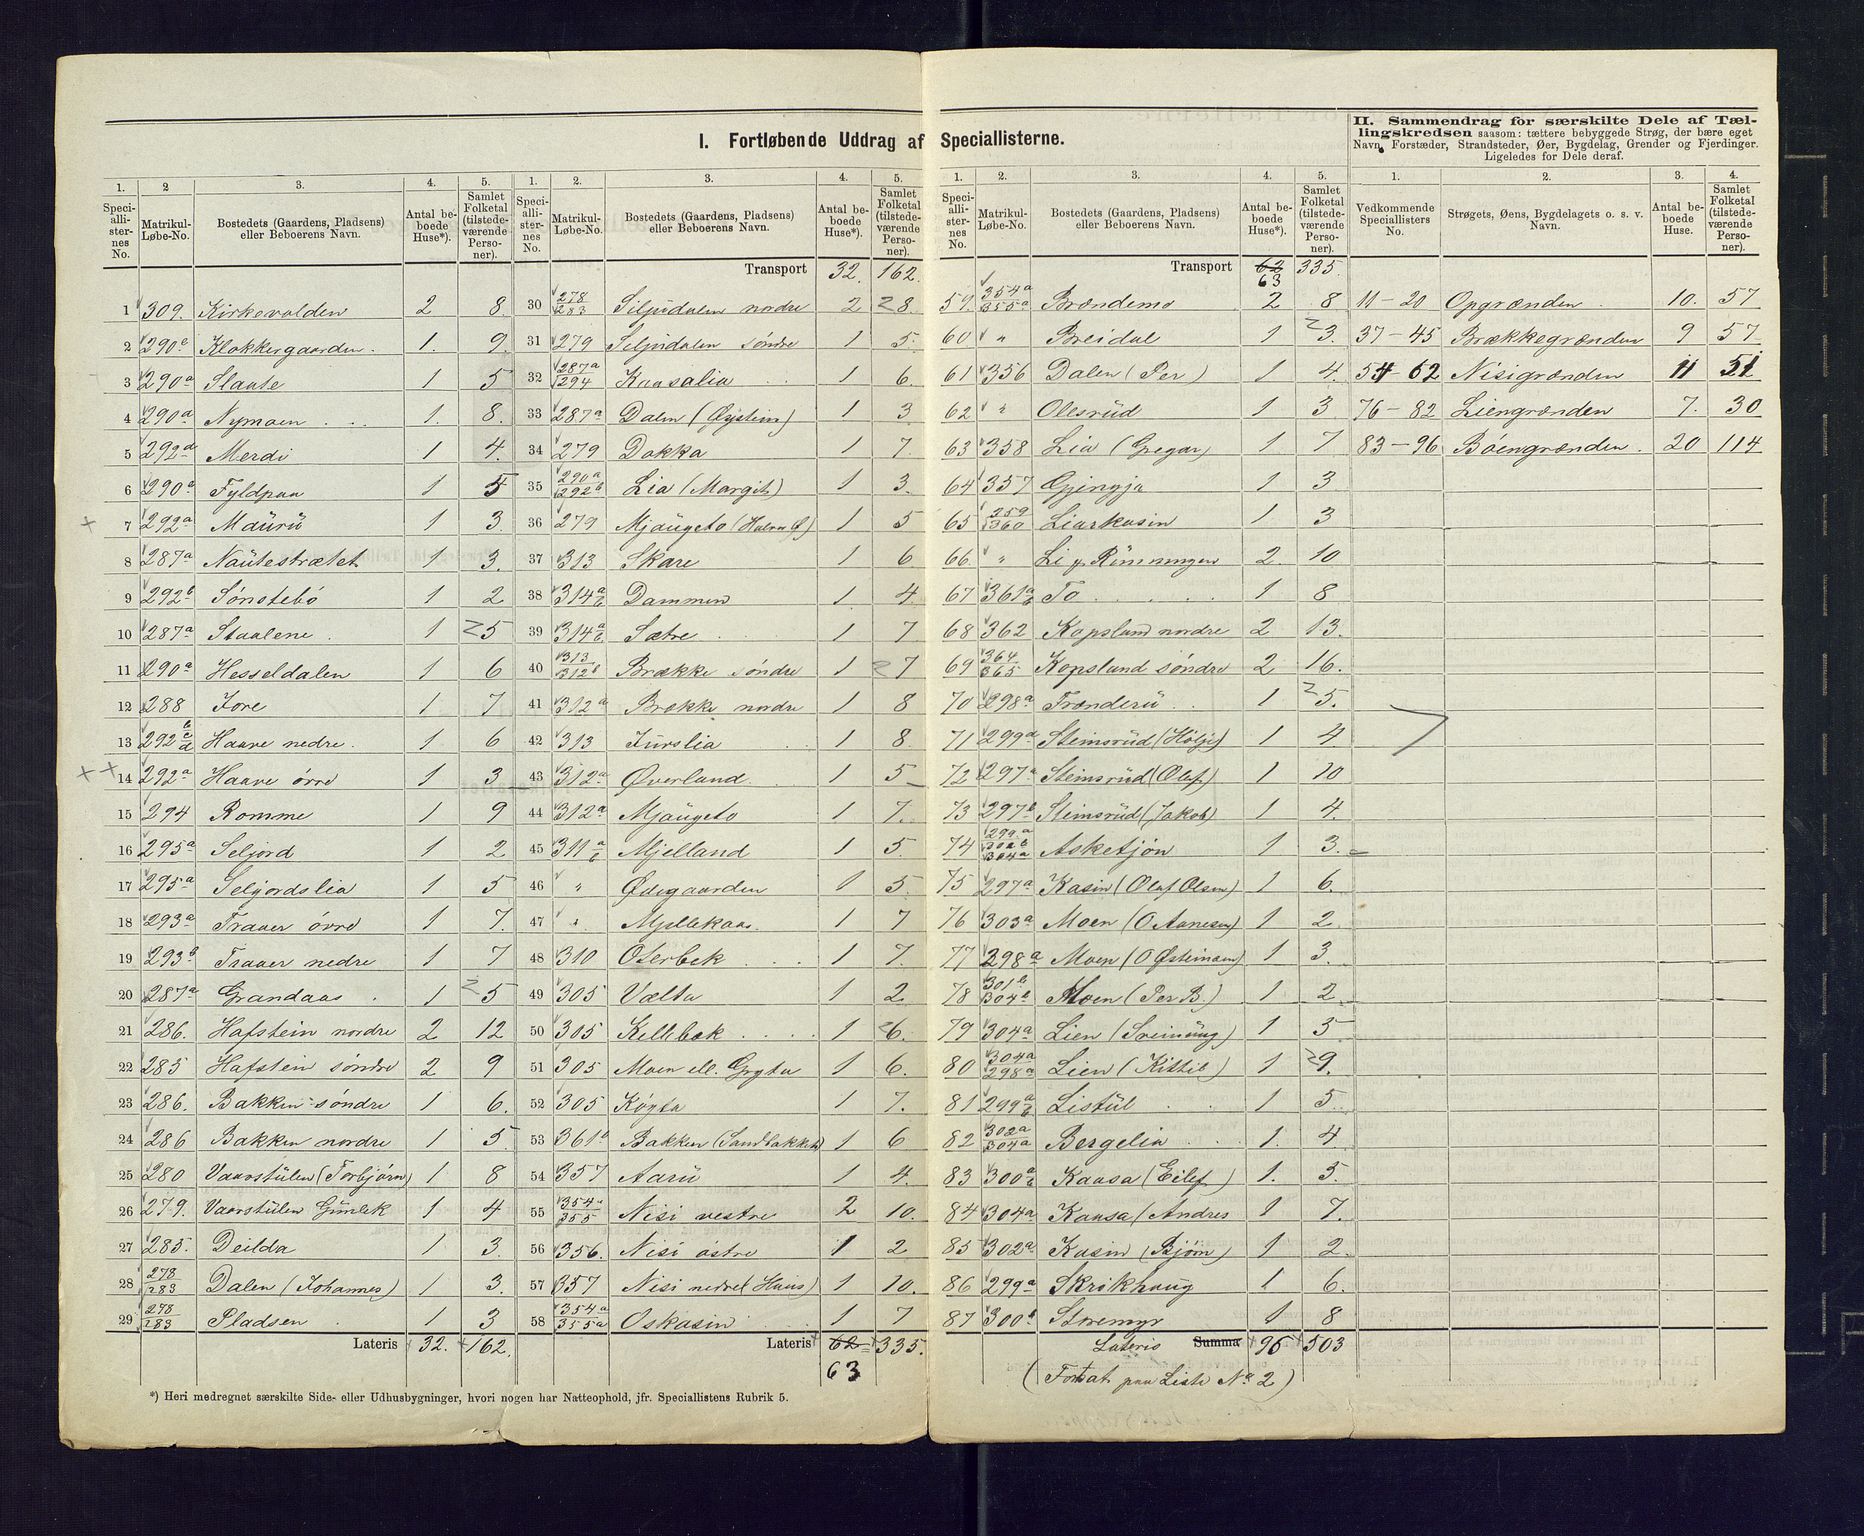 I. Fortløbende Uddrag af Speciallisterne.
II. Sammendrag for særskilte Dele af Tællingskredsen saasom: tættere bebyggede Strøg, der bære eget Navn, Forstæder, Strandsteder, Øer, Bygdelag, Grender og Fjerdinger. Ligeledes for Dele deraf.
1. 2 3. 4. 5.
Speciallisternes No. Matrikul-Løbe-No. Bostedets (Gaardens, Pladsens) eller Beboerens Navn. Antal beboede Huse*). Samlet Folketal (tilstedeværende Personer).
1 309. Kirkevolden 2 8
2 290e Klokkergaarden. 1. 9.
3 290a Slaate 1 5
4 290a Nymoen 1. 8.
5 292d Merdi 1 4.
6 290a Fyldpaa 1 5
7 292a Maurü 1 3.
8 287a Nautestrætet 1 3.
9 292b Sønstebø 1 2
10 287a Staalene. 1 5
11 290a Hesseldalen 1 6
12 288 Jore 1 7
13 292 Haave nedre. 1 6
14 292a Haave øvre 1 3
15 294 Romme 1 9
16 295a Seljord 1 2
17 295a Seljordslia 1 5
18 293a Traaer øvre 1 7.
19 293b Traaer nedre 1 7
20 287a Grandaas 1 5
21 286. Hafstein nordre 2 12
22 285 Hafstein søndre 2 9
23 286. Bakken søndre 1 6.
24 286 Bakken nordre 1 5
25 280 Vaarstülen (Torbjørn) 1 8
26 279. Vaarstülen Gunlek 1 4
27 285. Deilda 1 3.
28 278/283 Dalen (Johannes) 1 3.
29 278/283 Pladsen 1 3
Lateris 32. 162.
*) Heri medregnet særskilte Side- eller Udhusbygninger, hvori nogen har Natteophold, jfr. Speciallistens Rubrik 5.
1. 2. 3. 4. 5.
Speciallisternes No. Matrikul-Løbe-No. Bostedets (Gaardens, Pladsens) eller Beboerens Navn. Antal beboede Huse*). Samlet Folketal (tilstedeværende Personer).
Transport 32. 162.
30 278/283 Siljudalen nordre 2 8.
31 279 Siljudalen søndre 1 5.
32 287a/294 Kaasalia 1 6.
33 287a Dalen (Øystein) 1 3
34 279 Dokka 1 7.
35 290a/292b Lia (Margit) 1 3.
36 279 Mjaugeto (Halvor G) 1 5
37 313 Skare 1 6
38 314a/b Dammen 1. 4.
39 314a/b Sætre 1 7
40 313/312b Brække søndre 1 7
41 312a Brække nordre 1 8
42 313 Jurslia 1 8.
43 312a Øverland. 1 5
44 312a Mjaugeto 1 7.
45 311a/b Mjelland 1 5.
46 " Ødegaarden 1 5.
47 " Mjellekaas. 1 7
48 310 Oterbek 1 7.
49 305 Vælta 1 2.
50 305 Kellebek 1 6.
51 305 Moen ell. Gryta 1 6.
52 305 Køyta 1 7.
53 361a Bakken (Sandbakken) 1 6
54 357 Aarü 1 4.
55 354a/355 Nisi vestre 2 10.
56 356. Nisi østre 1 2
57 357 Nisi nedre (Hans) 1 10.
58 354a/355a Oskasin 1 7
Lateris 62 335.
63
1. 2. 3. 4. 5.
Speciallisternes No. Matrikul-Løbe-No. Bostedets (Gaardens, Pladsens) eller Beboerens Navn. Antal beboede Huse*). Samlet Folketal (tilstedeværende Personer).
Transport 62 335.
63
59. 354a/355a Brændemo 2 8
60 " Breidal 1 3.
61 356 Dalen (Per) 1 4.
62 " Olesrüd 1 3
63 358 Lia (Gregar) 1 7
64 357 Gjingja 1 3
65 359/360 Liarkasin 1 3
66 " Li y. Rønningen 2. 10
67 361a/b To 1 8
68 362 Kopsland nordre 2 13.
69 364/365 Kopsland søndre 2 16.
70 298a Trænderü 1 5.
71 299a Steimsrüd (Hølje) 1 4
72 297a Steimsrüd (Olaf) 1 10
73 297b Steimsrüd (Jakob) 1 4.
74 299a/302b/304a Asketjøn 1 3.
75 297a Kasin (Olaf Olsen) 1 6.
76 303a Moen (O Aanesen) 1 2
77 298a Moen (O Østeinsen) 1 3.
78 301b/304b Moen (Per B.) 1 2
79 304a Lien (Sveinüng) 1 5
80 304a/298a Lien (Kittil) 1 9.
81 299a/b Listül 1 5
82 302a/304a Bergelia 1. 4
83 300a/b Kaasa (Eilef) 1. 5.
84 304a Kaasa (Andres 1 7.
85 302a Kasin (Bjørn) 1 2
86 299a Skrikhaug 1 6
87 300b Stremyr 1 8
Lateris Summa 96 503
(Fortsat paa Liste No 2)
1. 2. 3. 4.
Vedkommende Speciallisters No. Strøgets, Øens, Bygdelagets o. s. v. Navn. Antal beboede Huse. Samlet Folketal (tilstedeværende Personer).
11-20 Opgrænden 10. 57
37-45 Brækkegrænden 9 57
54-62 Nisigrænden 11 51
76-82 Liengrænden 7. 30
83-96 Bøengrænden. 20 114